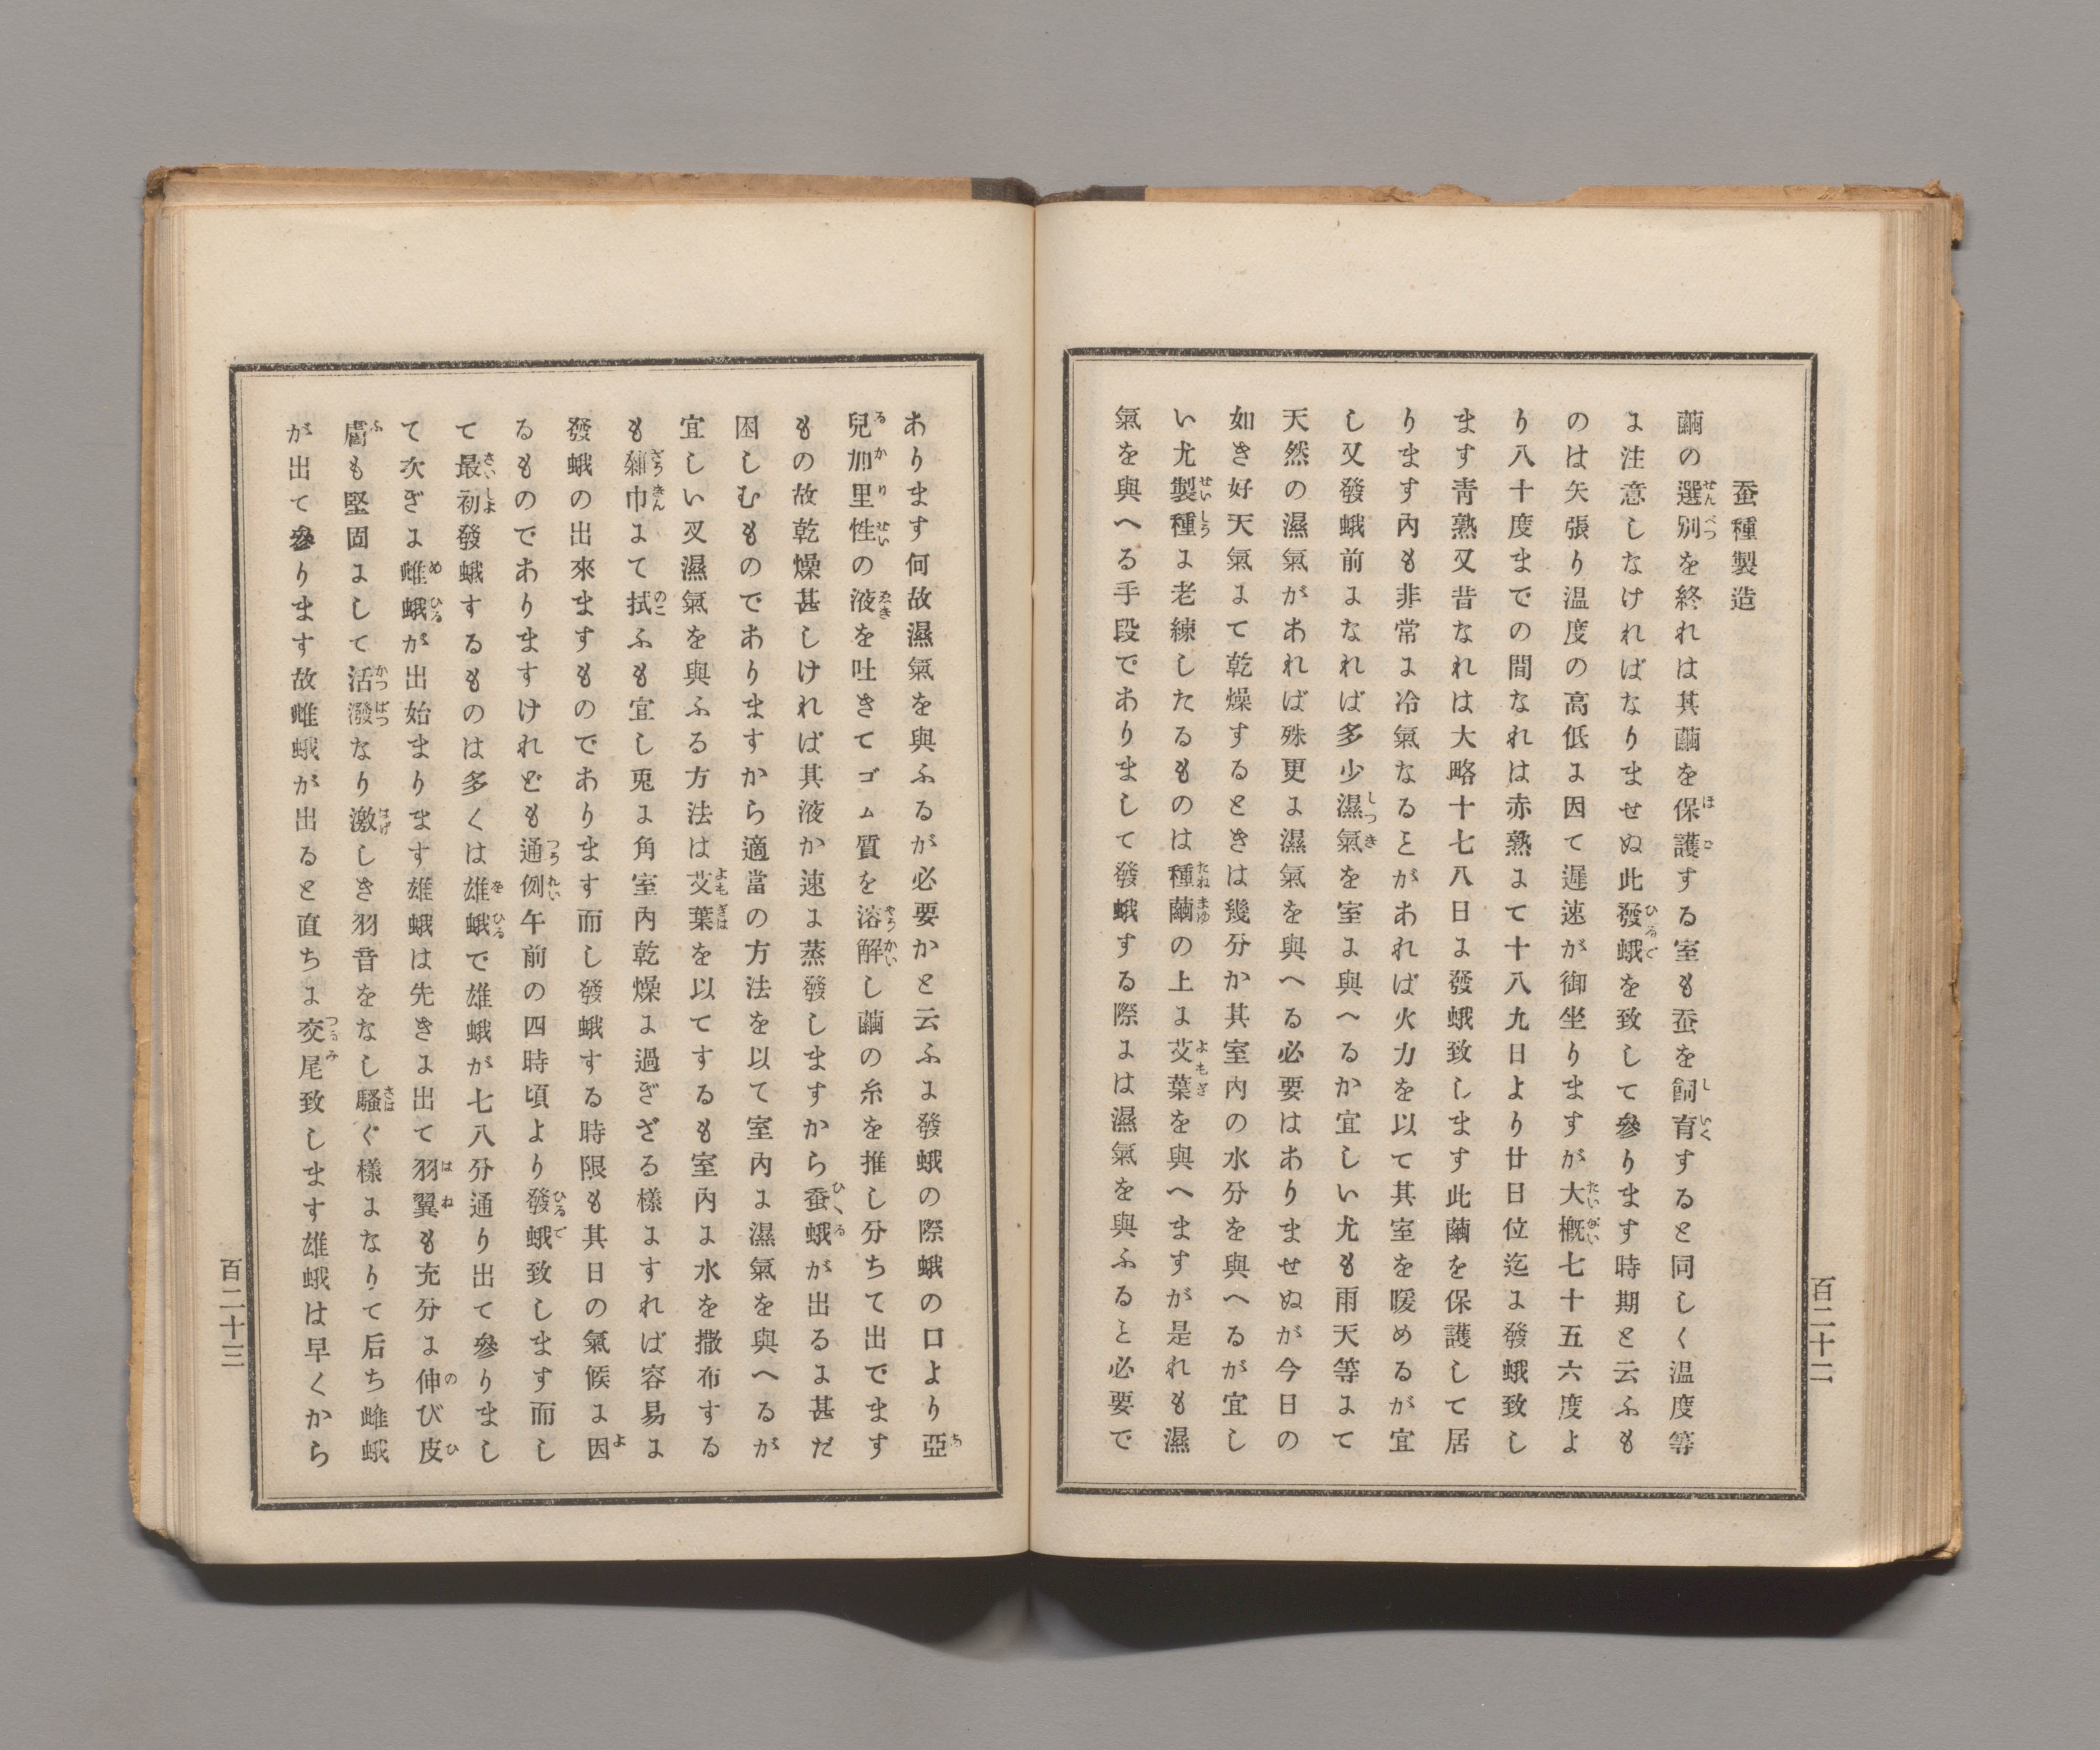 蚕種製造
繭の選別を終れは其繭を保護する室も蚕を飼育すると同しく温度等
に注意しなければなりませぬ此發蛾を致して參ります時期と云ふも
のは矢張り温度の高低に因て遲速が御坐りますが大概七十五六度よ
り八十度までの間なれは赤熟にて十八九日より廿日位迄に發蛾致し
ます靑熟又昔なれは大略十七八日に發蛾致します此繭を保護して居
ります內も非常に冷氣なるとがあれば火力を以て其室を暖めるが宜
し又發蛾前になれば多少濕氣を室に與へるか宜しい尤も雨天等にて
天然の濕氣があれば殊更に濕氣を與へる必要はありませぬが今日の
如き好天氣にて乾燥するときは幾分か其室内の水分を與へるが宜し
い尤製種に老練したるものは種繭の上に艾葉を與へますが是れも濕
氣を與へる手段でありまして發蛾する際には濕氣を與ふると必要で
百二十二
あります何故濕氣を與ふるが必要かと云ふに發蛾の際蛾の口より亞
兒加里性の液を吐きてゴム質を溶解し繭の糸を推し分ちて出でます
もの故乾燥甚しければ其液か速に蒸發しますから蚕蛾が出るに甚だ
困しむものでありますから適當の方法を以て室內に濕氣を與へるが
宜しい又濕氣を與ふる方法は艾葉を以てするも室內に水を撒布する
も雜巾にて拭ふも宜し兎に角室內乾燥に過ぎざる樣にすれば容易に
發蛾の出來ますものであります而し發蛾する時限も其日の氣候に因
るものでありますけれども通例午前の四時頃より發蛾致します而し
て最初發蛾するものは多くは雄蛾で雄蛾が七八分通り出て參りまし
て次ぎに雌蛾が出始まります雄蛾は先きに出て羽翼も充分に伸び皮
膚も堅固にして活潑なり激しき羽音をなし騷ぐ樣になりて后ち雌蛾
が出て參ります故雌蛾が出ると直ちに交尾致します雄蛾は早くから
百二十三